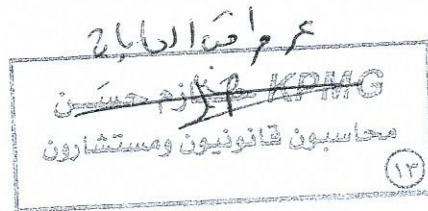 مراقب الحسابات
KPMG حازم حسن
محاسبون قانونيون ومستشارون
١٣